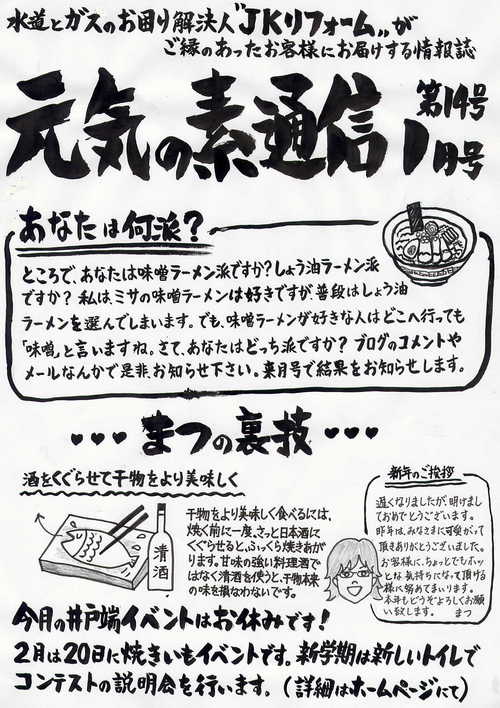 水道とガスのお困り解決人"JKリフォーム"が
ご縁のあったお客様にお届けする情報誌
元気の素通信
第14号
1月号
あなたは何派?
ところで、あなたは味噌ラーメン派ですか?しょう油ラーメン派
ですか? 私は、ミサの味噌ラーメンは好きですが、普段はしょう油
ラーメンを選んでしまいます。でも、味噌ラーメンが好きな人はどこへ行っても
「味噌」と言いますね。さて、あなたはどっち派ですか? ブログのコメントや
メールなんかで是非、お知らせ下さい。来月号で結果をお知らせします。
・・・まつの裏技・・・
酒をくぐらせて干物をより美味しく
清酒
干物をより美味しく食べるには、
焼く前に一度、さっと日本酒に
くぐらせると、ふっくら焼きあが
ります。甘味の強い料理酒で
はなく清酒を使うと、干物本来
の味を損なわないです。
新年のご挨拶
遅くなりましたが、明けまし
ておめでとうございます。
昨年は、みなさまに可愛がって
頂きありがとうございました。
お客様に、ちょっとでもホッ
とな気持ちになって頂ける
様に努めてまいります。
本年もどうぞよろしくお願
い致します。 まつ
今月の井戸端イベントはお休みです!
2月は20日に焼きいもイベントです。新学期は新しいトイレで
コンテストの説明会を行います。(詳細はホームページにて)